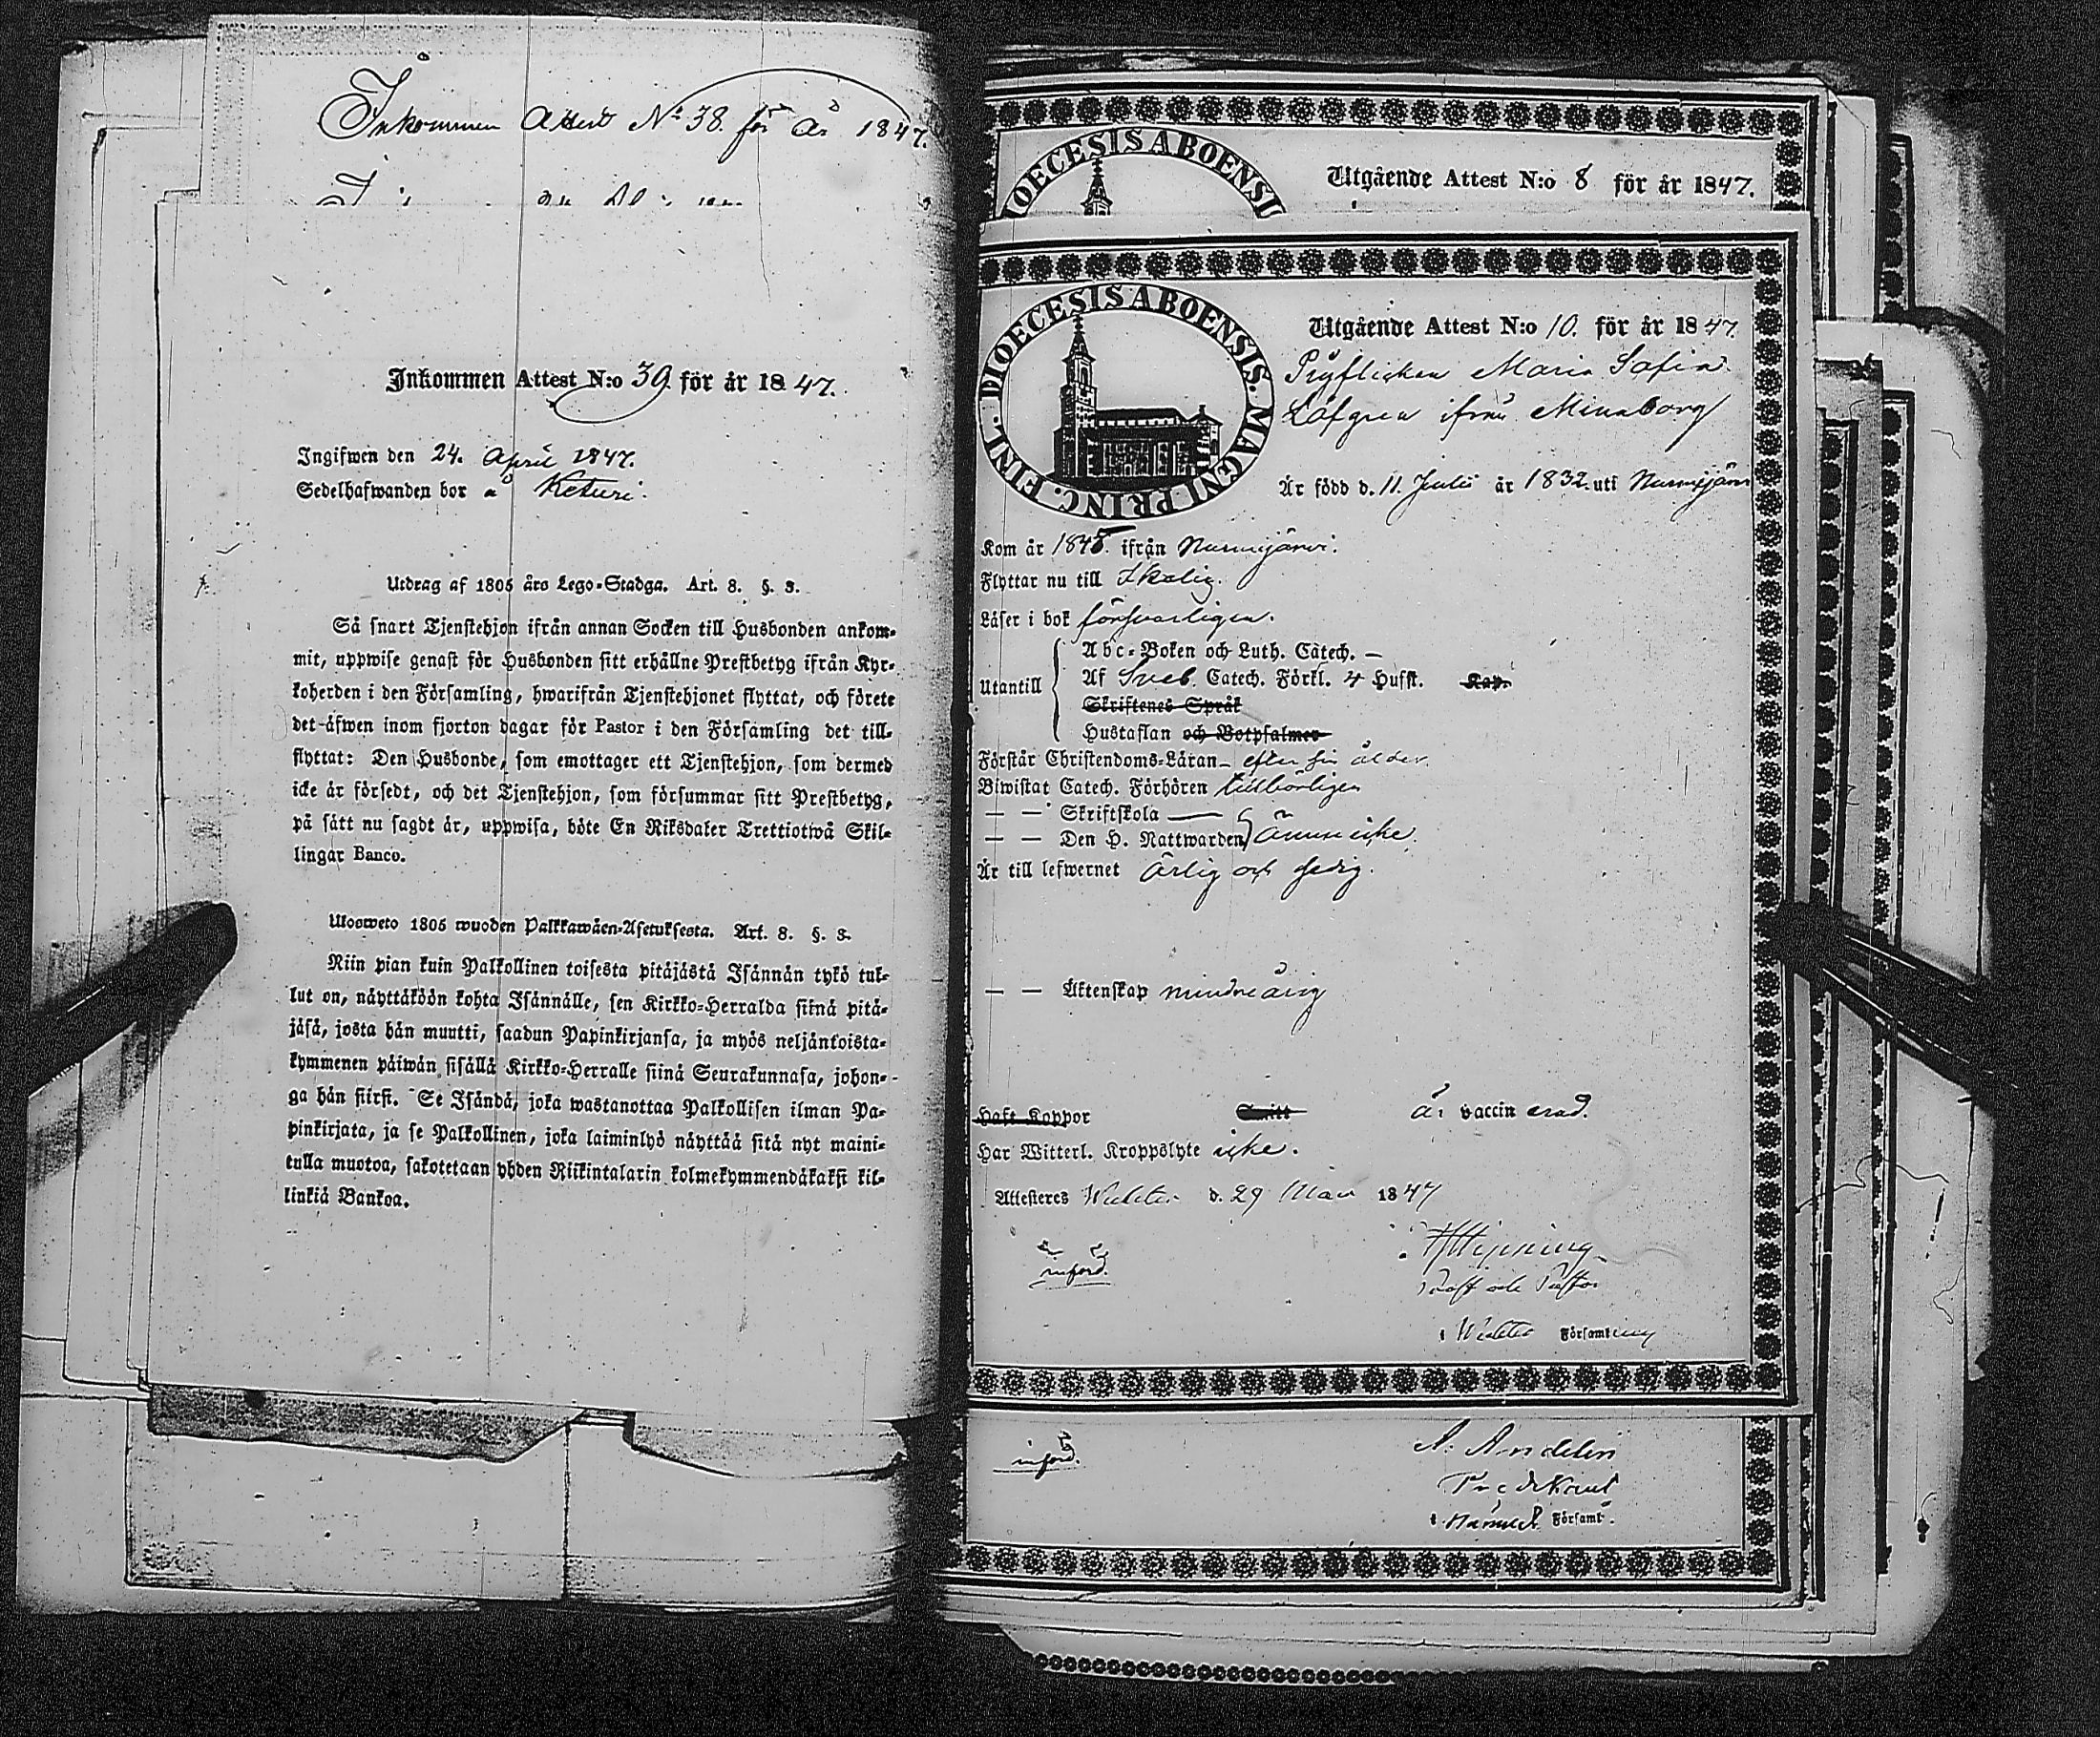 Inkommen Attest No 38. för år 1847.
Inkommen Attest N:o 39. för år 1847.
Ingifwen den 24. April 1847.
Sedelhafwanden bor å Keturi.
Utdrag af 1805 års Lego-Stadga. Art. 8. §. 3.
Så snart Tjenstehjon ifrån annan Socken till Husbonden ankom-
mit, uppwise genast för Husbonden sitt erhållne Prestbetyg ifrån Kyr-
koherden i den Församling, hwarifrån Tjenstehjonet flyttat, och förete
det äfwen inom fjorton dagar för Pastor i den Församling det till-
flyttat: Den Husbonde, som emottager ett Tjenstehjon, som dermed
icke är försedt, och det Tjenstehjon, som försummar sitt Prestbetyg,
på sätt nu sagdt är, uppwisa, böte En Riksdaler Trettiotwå Skil-
lingar Banco.
Ulosweto 1805 wuoden Palkkawäen-Asetuksesta. Art. 8. §. 3.
Niin pian kuin Palkollinen toisesta pitäjästä Isännän tykö tul-
lut on, näyttäköön kohta Isännälle, sen Kirkko-Herralda siinä pitä-
jäsä, josta hän muutti, saadun Papinkirjansa, ja myös neljäntoista-
kymmenen päiwän sisällä Kirkko-Herralle siinä Seurakunnasa, johon-
ga hän siirsi. Se Isändä, joka wastanottaa Palkollisen ilman Pa-
pinkirjata, ja se Palkollinen, joka laiminlyö näyttää sitä nyt maini-
tulla muotoa, sakotetaan yhden Riikintalarin kolmekymmendäkaksi kil-
linkiä Bankoa.
DIOECESIS ABOENSI
Utgående Attest N:o 8 för år 1847.
FINL. DIOECESIS ABOENSIS. MAGNI PRINC.
Utgående Attest N:o 10. för år 1847.
Pigflickan Maria Sofia
Löfgren ifrån Minaborg
Är född d. 11. Julii år 1832. uti Nurmijärvi
Kom år 1845. ifrån Nurmijärvi.
Flyttar nu till Ikalis.
Läser i bok försvarligen.
Utantill
Abc-Boken och Luth. Catech. —
Af Sveb. Catech. Förkl. 4 Hufst. Kap.
Skriftenes Språk
Hustaflan och Botpsalmer
Förstår Christendoms-Läran efter sin ålder.
Biwistat Catech. Förhören tillbörligen
— — Skriftskola —
— — Den H. Nattwarden ännu icke.
Är till lefwernet ärlig och sedig.
— — Äktenskap minderårig
Haft Koppor Smitt är vaccinerad.
Har Witterl. Kroppslyte icke.
Attesteres Wichtis d. 29 Mars 1847
införd.
Hipping
Prost och Pastor
i Wichtis Församling
införd.
A. Andelin
Predikant
i Församl.